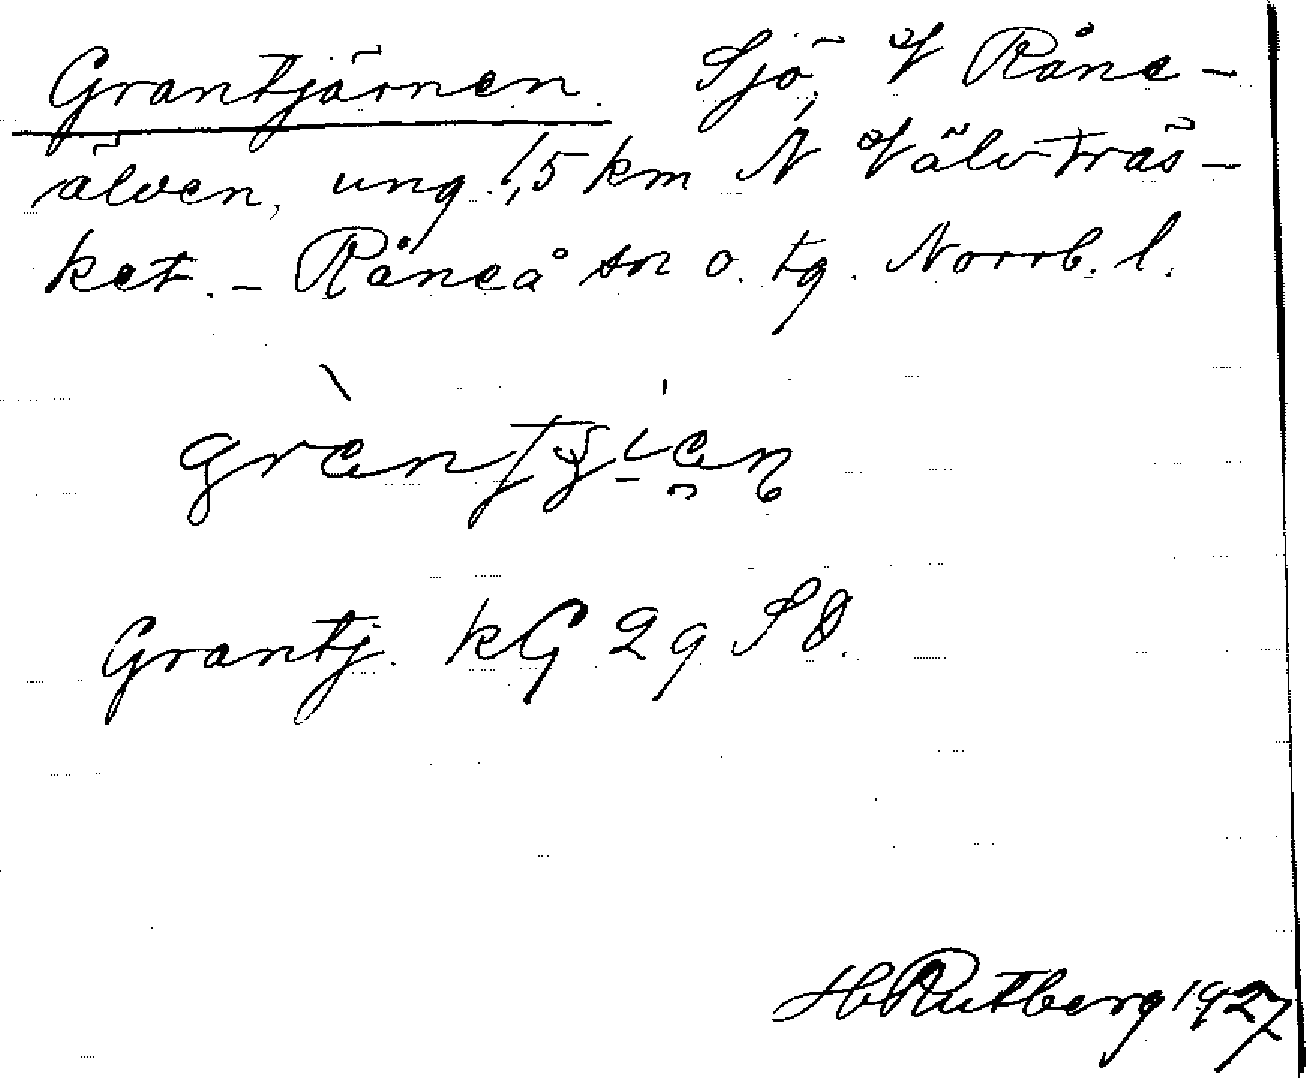 Grantjärnen. Sjö, V Råne-
älven, ung. 1,5 km N Välvträs-
ket. - Råneå sn o. tg. Norrb. l.
Grantj. kG 29 SO.
H Rutberg 1927